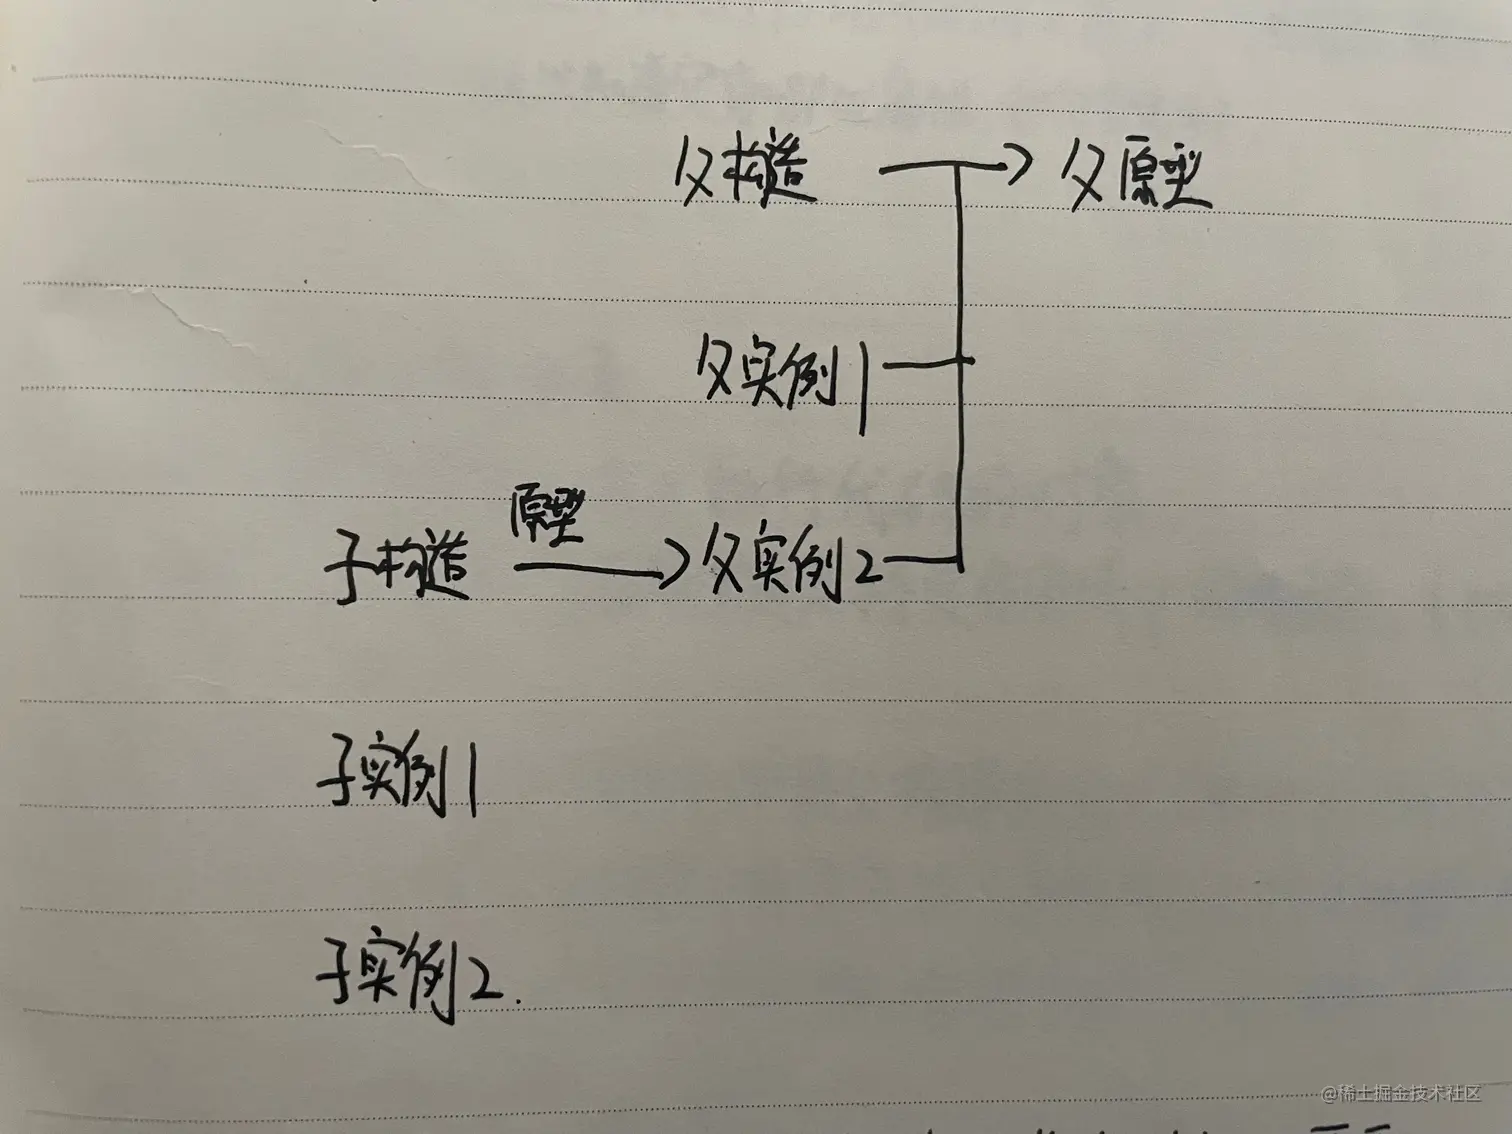 父构造 父原型
父实例1
原型
子构造 父实例2
子实例1
子实例2.
@稀土掘金技术社区